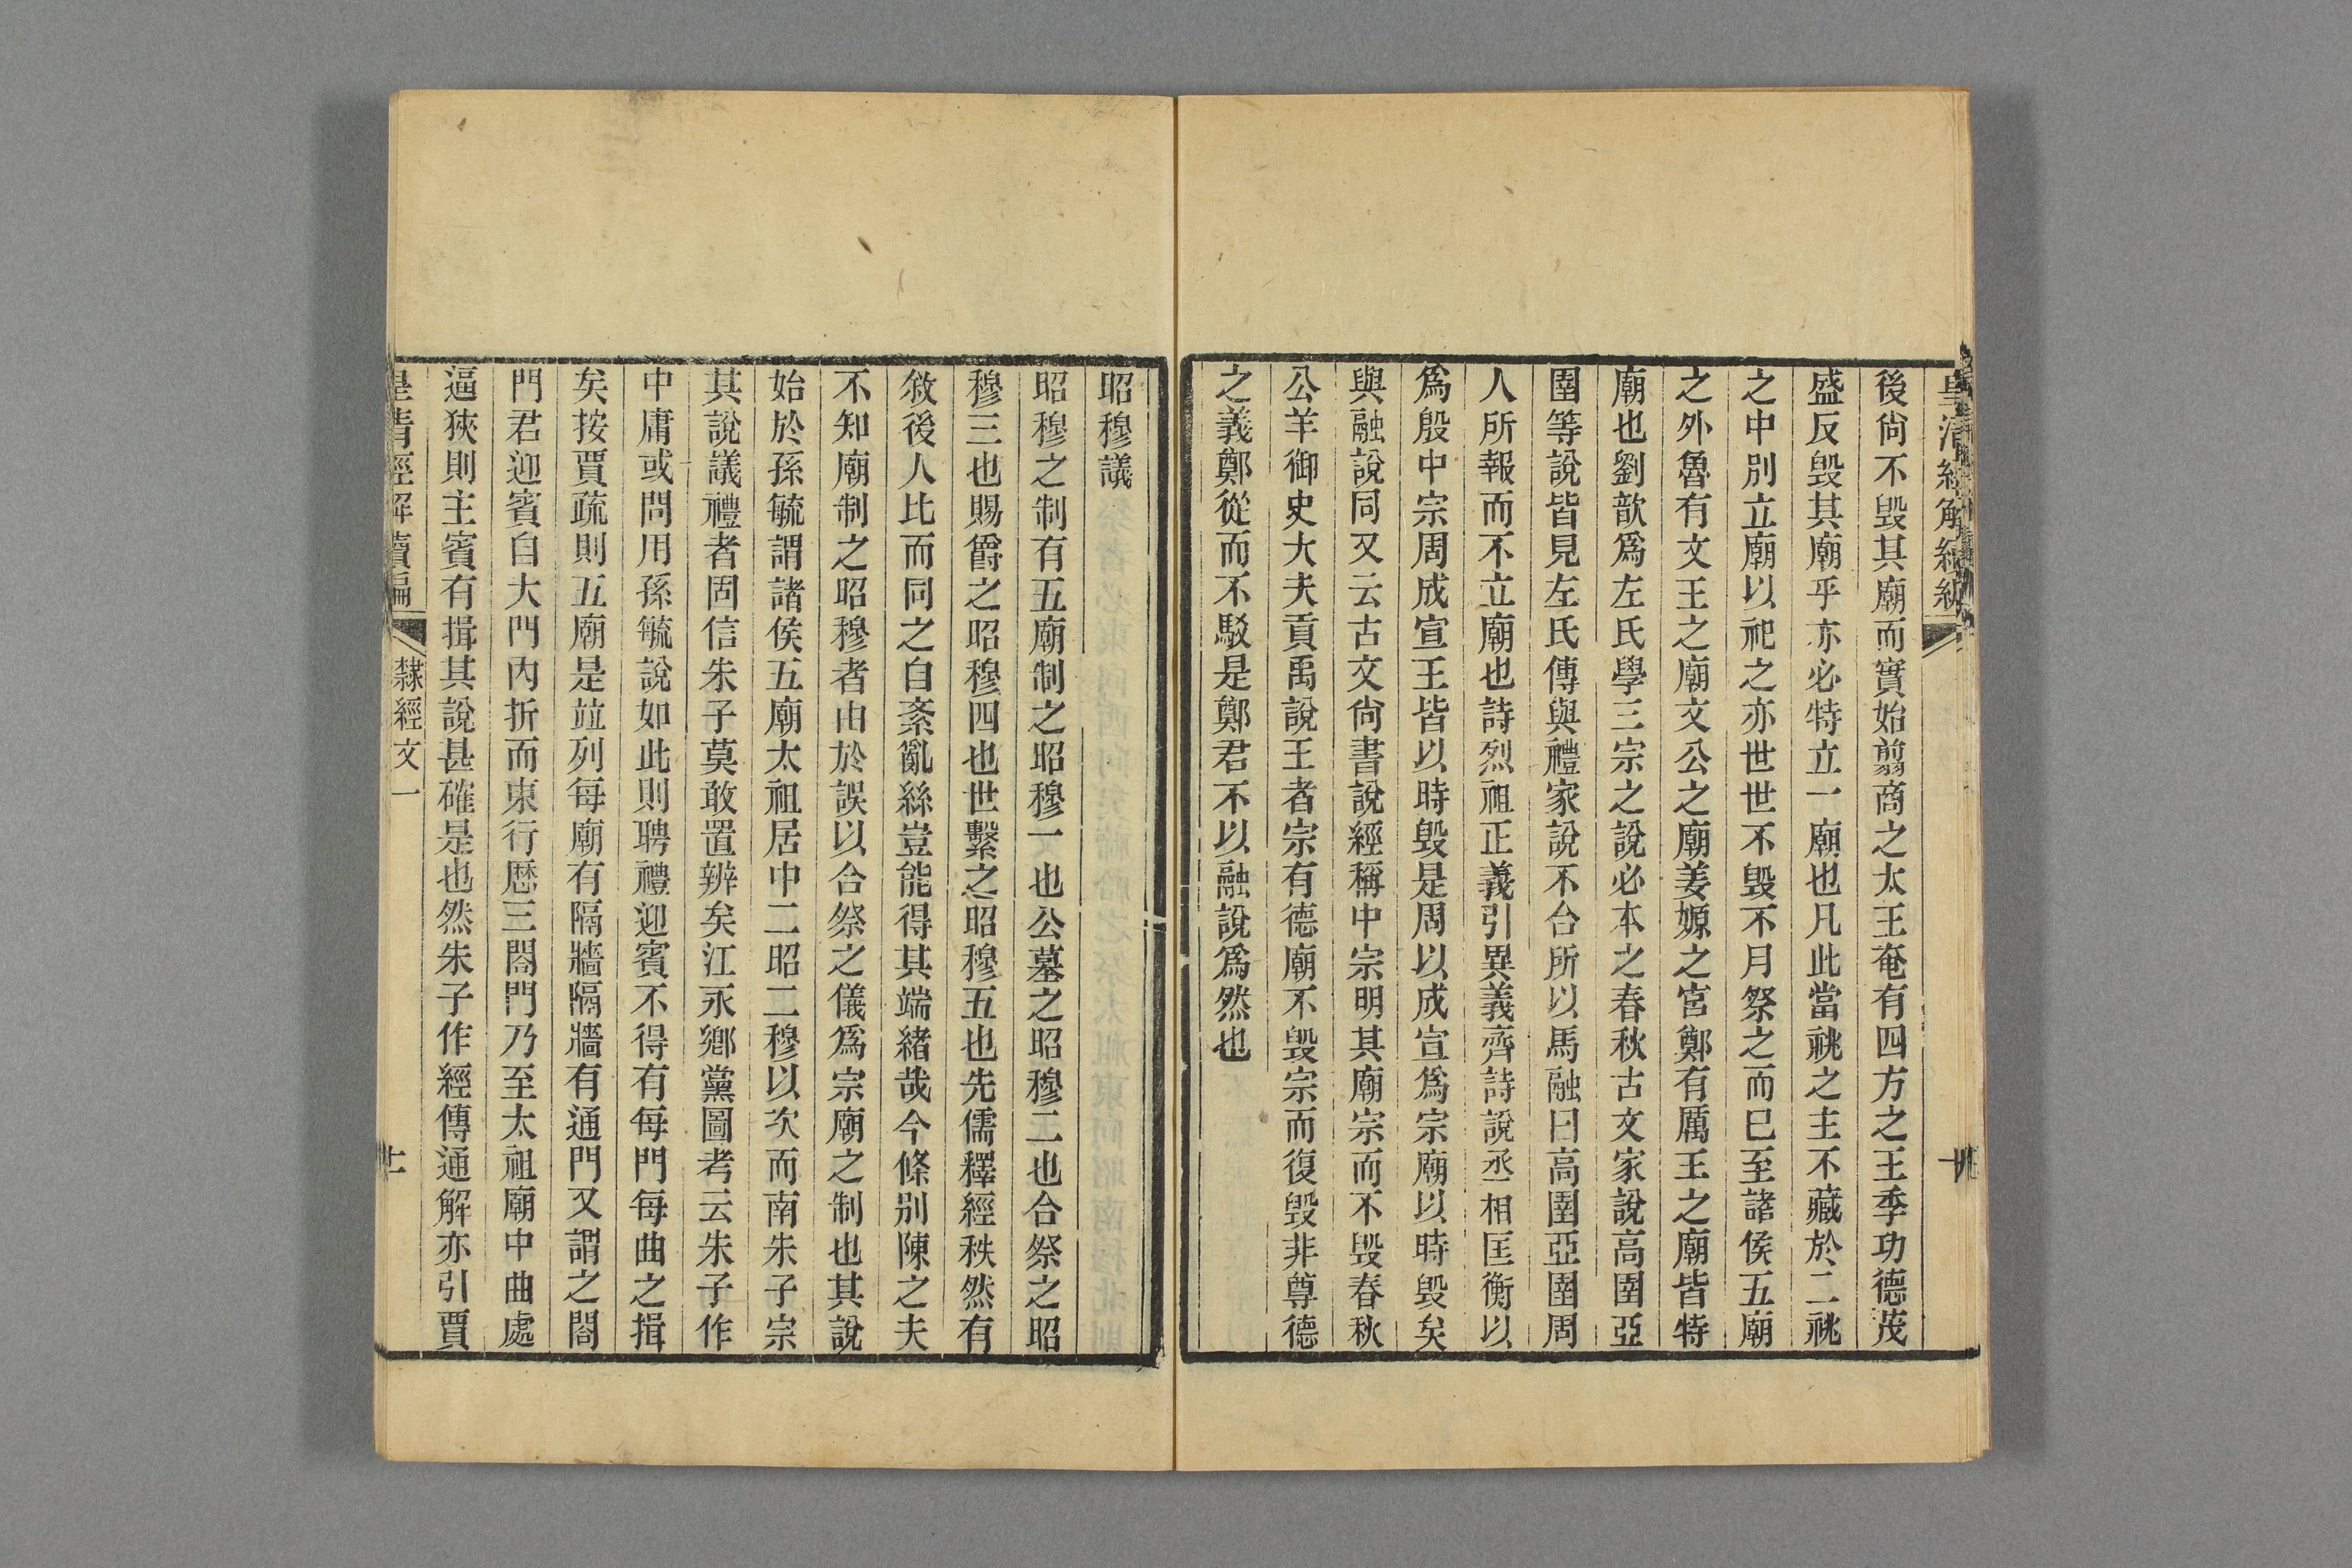 後尙不毀其廟而實始翦商之太王奄有四方之王季功德茂
盛反毀其廟乎亦必特立一廟也凡此當祧之主不藏於二祧
之中別立廟以祀之亦世世不毀不月祭之而已至諸侯五廟
之外魯有文王之廟文公之廟姜嫄之宮鄭有厲王之廟皆特
廟也劉歆爲左氏學三宗之說必本之春秋古文家說高圉亞
圉等說皆見左氏傳與禮家說不合所以馬融曰高圉亞圉周
人所報而不立廟也詩烈祖正義引異義齊詩說丞相匡衡以
爲殷中宗周成宣王皆以時毀是周以成宣爲宗廟以時毀矣
與融說同又云古文尙書說經稱中宗明其廟宗而不毀春秋
公羊御史大夫貢禹說王者宗有德廟不毀宗而復毀非尊德
之義鄭從而不駁是鄭君不以融說爲然也
昭穆議
昭穆之制有五廟制之昭穆一也公墓之昭穆二也合祭之昭
穆三也賜爵之昭穆四也世繫之昭穆五也先儒釋經秩然有
敘後人比而同之自紊亂絲豈能得其端緒哉今條別陳之夫
不知廟制之昭穆者由於誤以合祭之儀爲宗廟之制也其說
始於孫毓謂諸侯五廟太祖居中二昭二穆以次而南朱子宗
其說議禮者固信朱子莫敢置辨矣江永鄉黨圖考云朱子作
中庸或問用孫毓說如此則聘禮迎賓不得有每門每曲之揖
矣按賈疏則五廟是竝列每廟有隔牆隔牆有通門又謂之閤
門君迎賓自大門內折而東行歷三閤門乃至太祖廟中曲處
逼狹則主賓有揖其說甚確是也然朱子作經傳通解亦引賈
皇清經解續編 隸經文一 十一